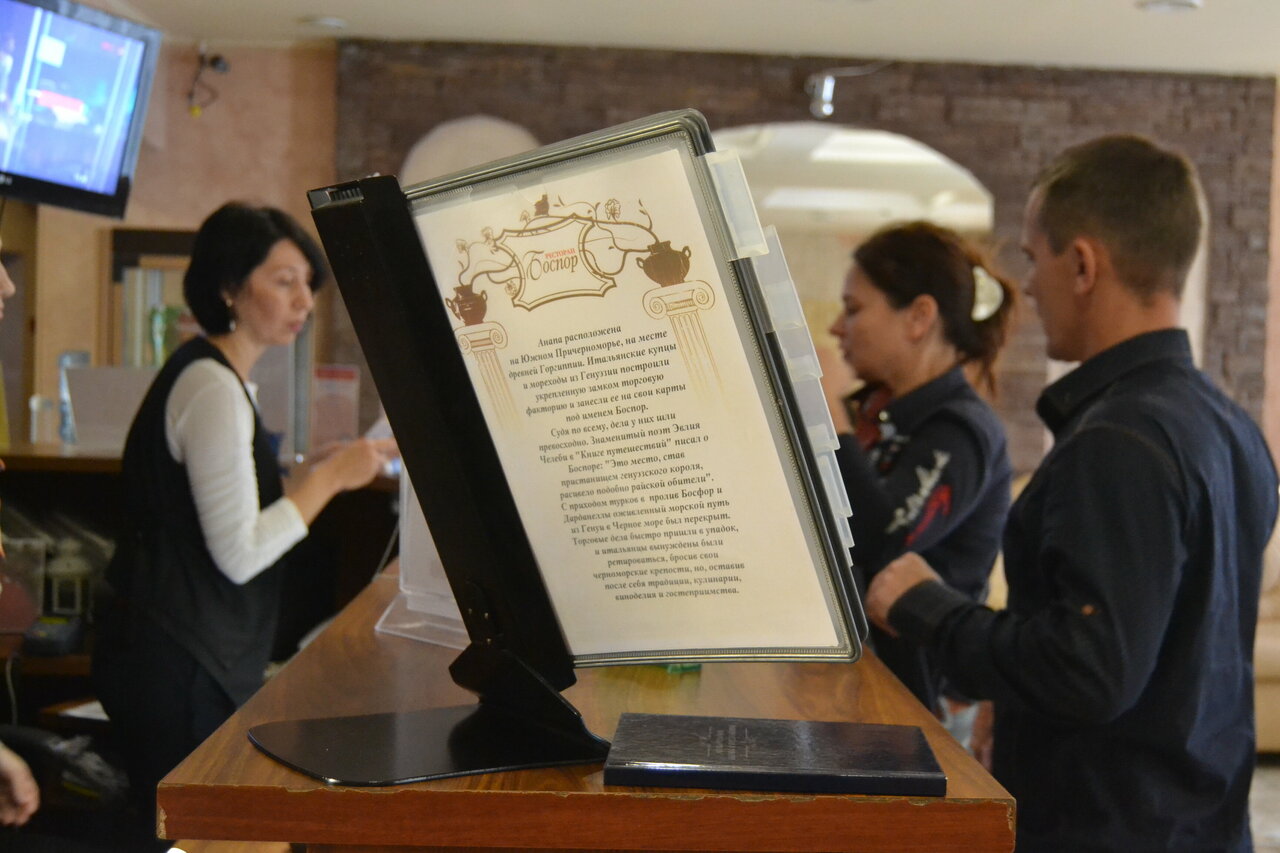 РЕСТОРАН
Боспор
Анапа расположена
на Южном Причерноморье, на месте
древней Горгиппии. Итальянские купцы
и мореходы из Генуэзии построили
укрепленную замком торговую
факторию и занесли ее на свои карты
под именем Боспор.
Судя по всему, дела у них шли
превосходно. Знаменитый поэт Эвлия
Челеби в "Книге путешествий" писал о
Боспоре: "Это место, став
пристанищем генуэзского короля,
расцвело подобно райской обители".
С приходом турков в пролив Босфор и
Дарданеллы оживленный морской путь
из Генуи в Черное море был перекрыт.
Торговые дела быстро пришли в упадок,
и итальянцы вынуждены были
ретироваться, бросив свои
черноморские крепости, но, оставив
после себя традиции, кулинарии,
виноделия и гостеприимства.